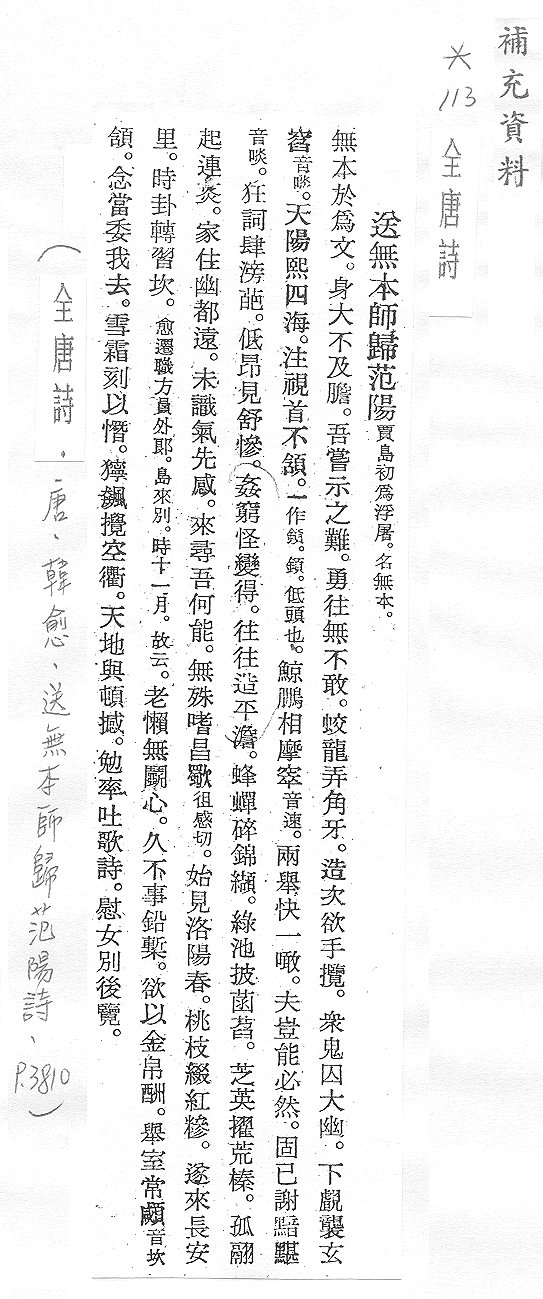 補充資料
※113 全唐詩
送無本師歸范陽 賈島初爲浮屠。名無本。
無本於爲文。身大不及膽。吾嘗示之難。勇往無不敢。蛟龍弄角牙。造次欲手攬。衆鬼囚大幽。下覷襲玄
窞音啖。天陽熙四海。注視首不頷。一作鎮。鎮。低頭也。鯨鵬相摩窣音速。兩舉快一噉。夫豈能必然。固已謝黯黮
音啖。狂詞肆滂葩。低昂見舒慘。姦窮怪變得。往往造平澹。蜂蟬碎錦纈。綠池披菡萏。芝英擢荒榛。孤翮
起連菼。家住幽都遠。未識氣先感。來尋吾何能。無殊嗜昌歜徂感切。始見洛陽春。桃枝綴紅糝。遂來長安
里。時卦轉習坎。愈遷職方員外郎。島來別。時十一月。故云。老懶無鬭心。久不事鉛槧。欲以金帛酬。舉室常顑音坎
頷。念當委我去。雪霜刻以憯。獰飆攪空衢。天地與頓撼。勉率吐歌詩。慰女別後覽。
（全唐詩．唐、韓愈、送無本師歸范陽詩、P.3810）